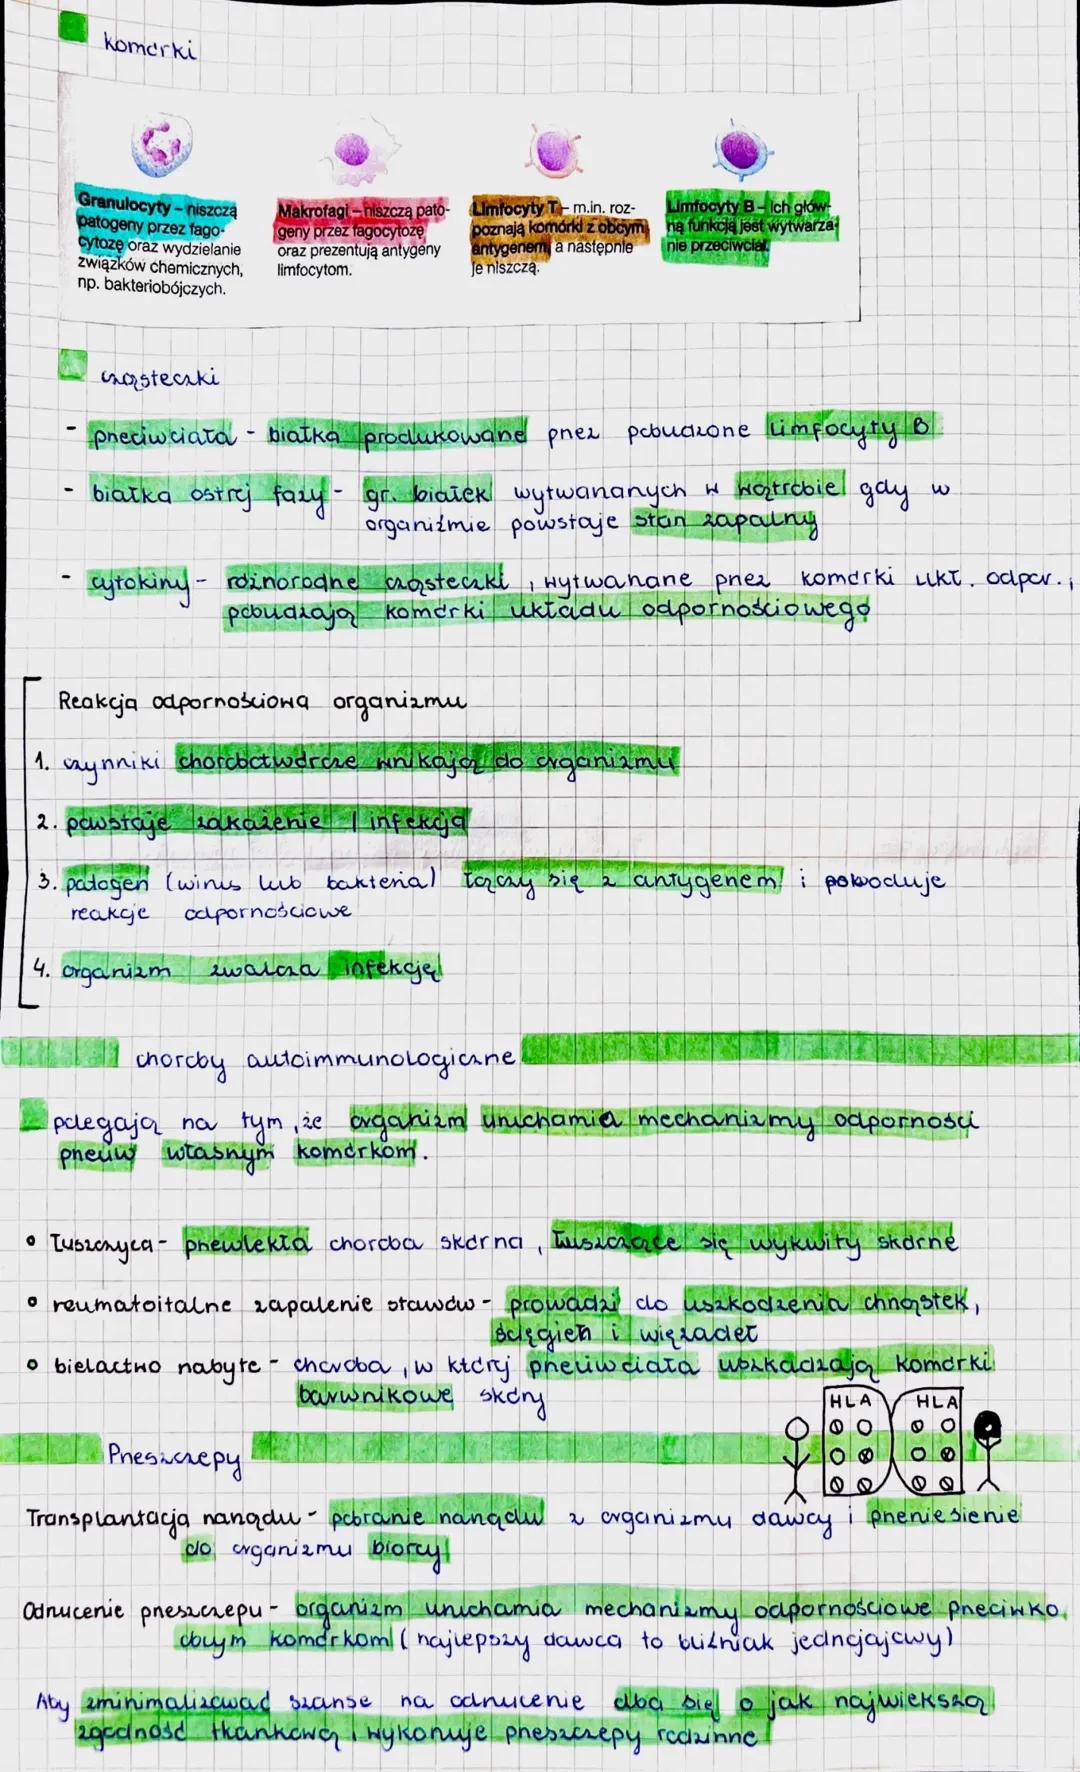 komórki
Granulocyty – niszczą
patogeny przez fago-
cytozę oraz wydzielanie
związków chemicznych,
np. bakteriobójczych.
Makrofagi – niszczą pato-
geny przez fagocytozę
oraz prezentują antygeny
limfocytom.
Limfocyty T – m.in. roz-
poznają komórki z obcym
antygenem, a następnie
je niszczą.
Limfocyty B – Ich głów-
ną funkcją jest wytwarza-
nie przeciwciał.
cząsteczki
- przeciwciała - białka produkowane przez pobudzone limfocyty B
- białka ostrej fazy - gr. białek wytwarzanych w wątrobie gdy w
organiźmie powstaje stan zapalny
- cytokiny - różnorodne cząsteczki, wytwarzane przez komórki ukł. odpor.,
pobudzają komórki układu odpornościowego
Reakcja odpornościowa organizmu
1. czynniki chorobotwórcze wnikają do organizmu
2. powstaje zakażenie / infekcja
3. patogen (wirus lub bakteria) łączy się z antygenem i powoduje
reakcje odpornościowe
4. organizm zwalcza infekcję
choroby autoimmunologiczne
polegają na tym, że organizm uruchamia mechanizmy odporności
przeciw własnym komórkom.
• Łuszczyca - przewlekła choroba skórna, łuszczące się wykwity skórne
• reumatoitalne zapalenie stawów - prowadzi do uszkodzenia chrząstek,
ścięgien i więzadeł
• bielactwo nabyte - choroba, w której przeciwciała uszkadzają komórki
barwnikowe skóry
HLA HLA
Przeszczepy
Transplantacja narządu - pobranie narządu z organizmu dawcy i przeniesienie
do organizmu biorcy
Odrzucenie przeszczepu - organizm uruchamia mechanizmy odpornościowe przeciwko
obcym komórkom (najlepszy dawca to bliźniak jednojajowy)
Aby zminimalizować szanse na odrzucenie dba się o jak największą
zgodność tkankową i wykonuje przeszczepy rodzinne